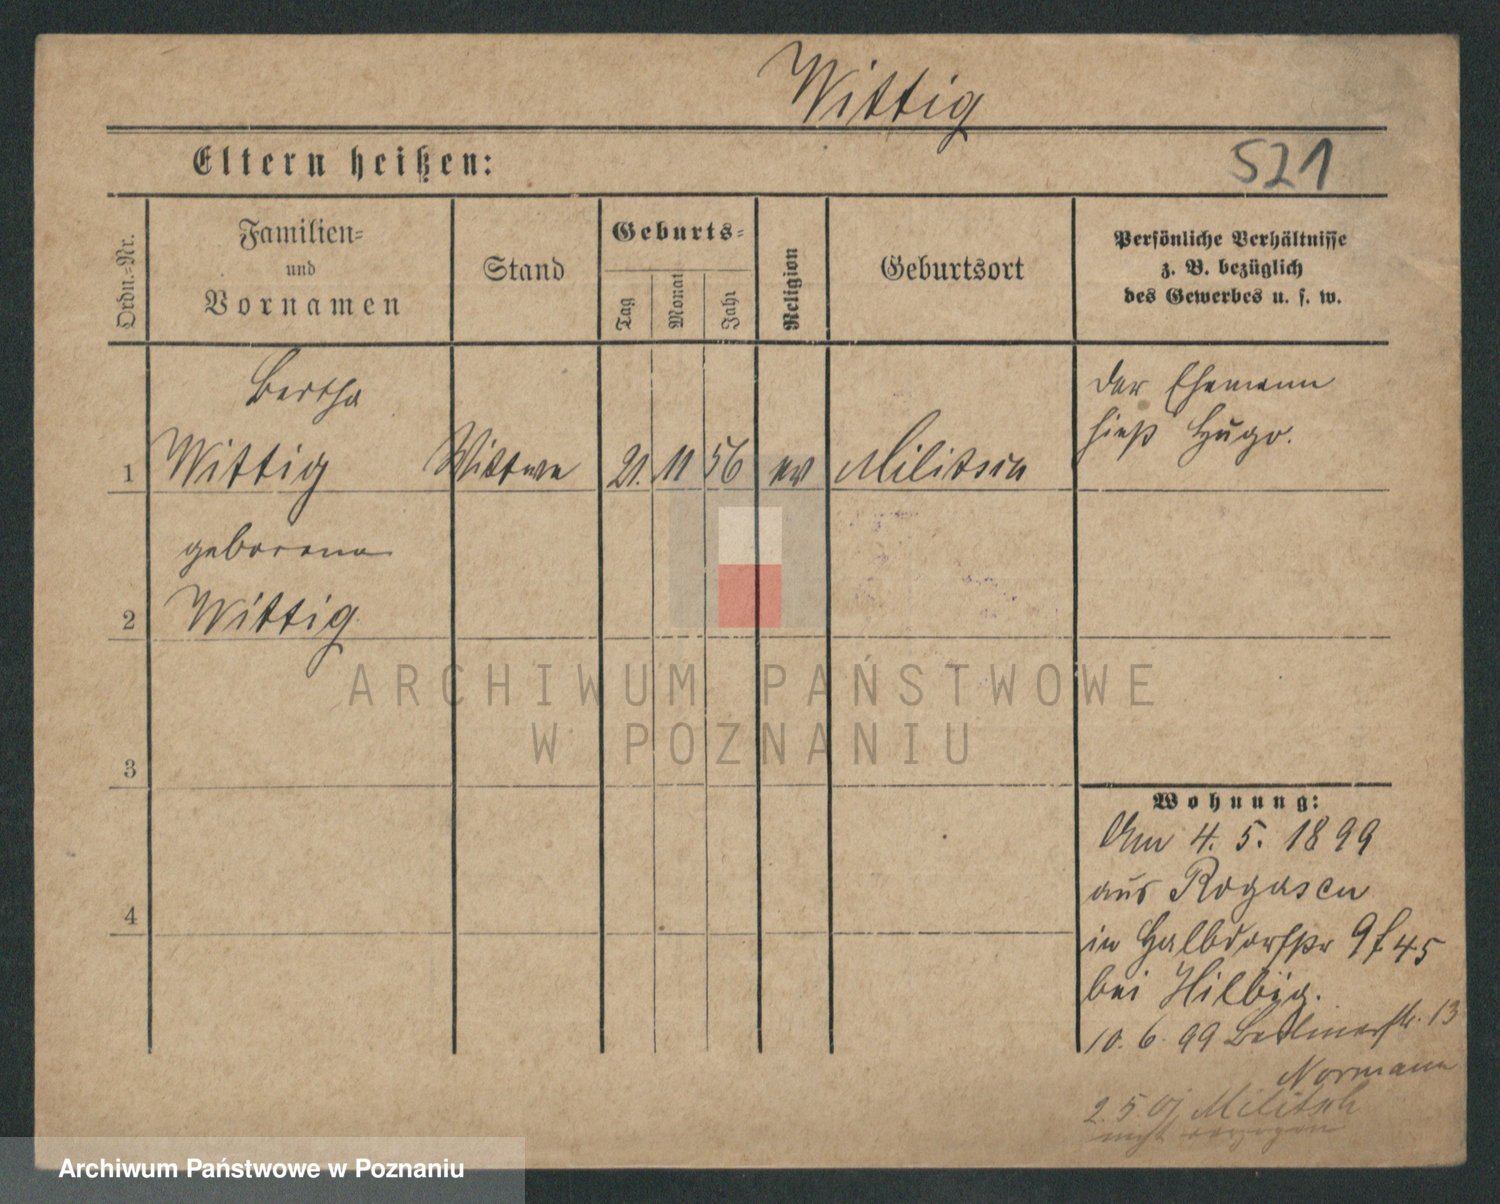 Wittig
Eltern heißen:
521
Ordn.-Nr.
Familien-
und
Vornamen
Stand
Geburts-
Tag
Monat
Jahr
Religion
Geburtsort
Persönliche Verhältnisse
z. B. bezüglich
des Gewerbes u. s. w.
Bertha
1 Wittig Wittwe 21. 11 56 ev Militsch
der Ehemann
hieß Hugo.
geborene
2 Wittig
3
4
Wohnung:
Am 4. 5. 1899
aus Rogasen
in Halbdorfstr 9 45
bei Hilbig.
10. 6. 99 Berlinerstr. 13
Normann
2. 5. Militsch
verzogen
ARCHIWUM PAŃSTWOWE
W POZNANIU
Archiwum Państwowe w Poznaniu